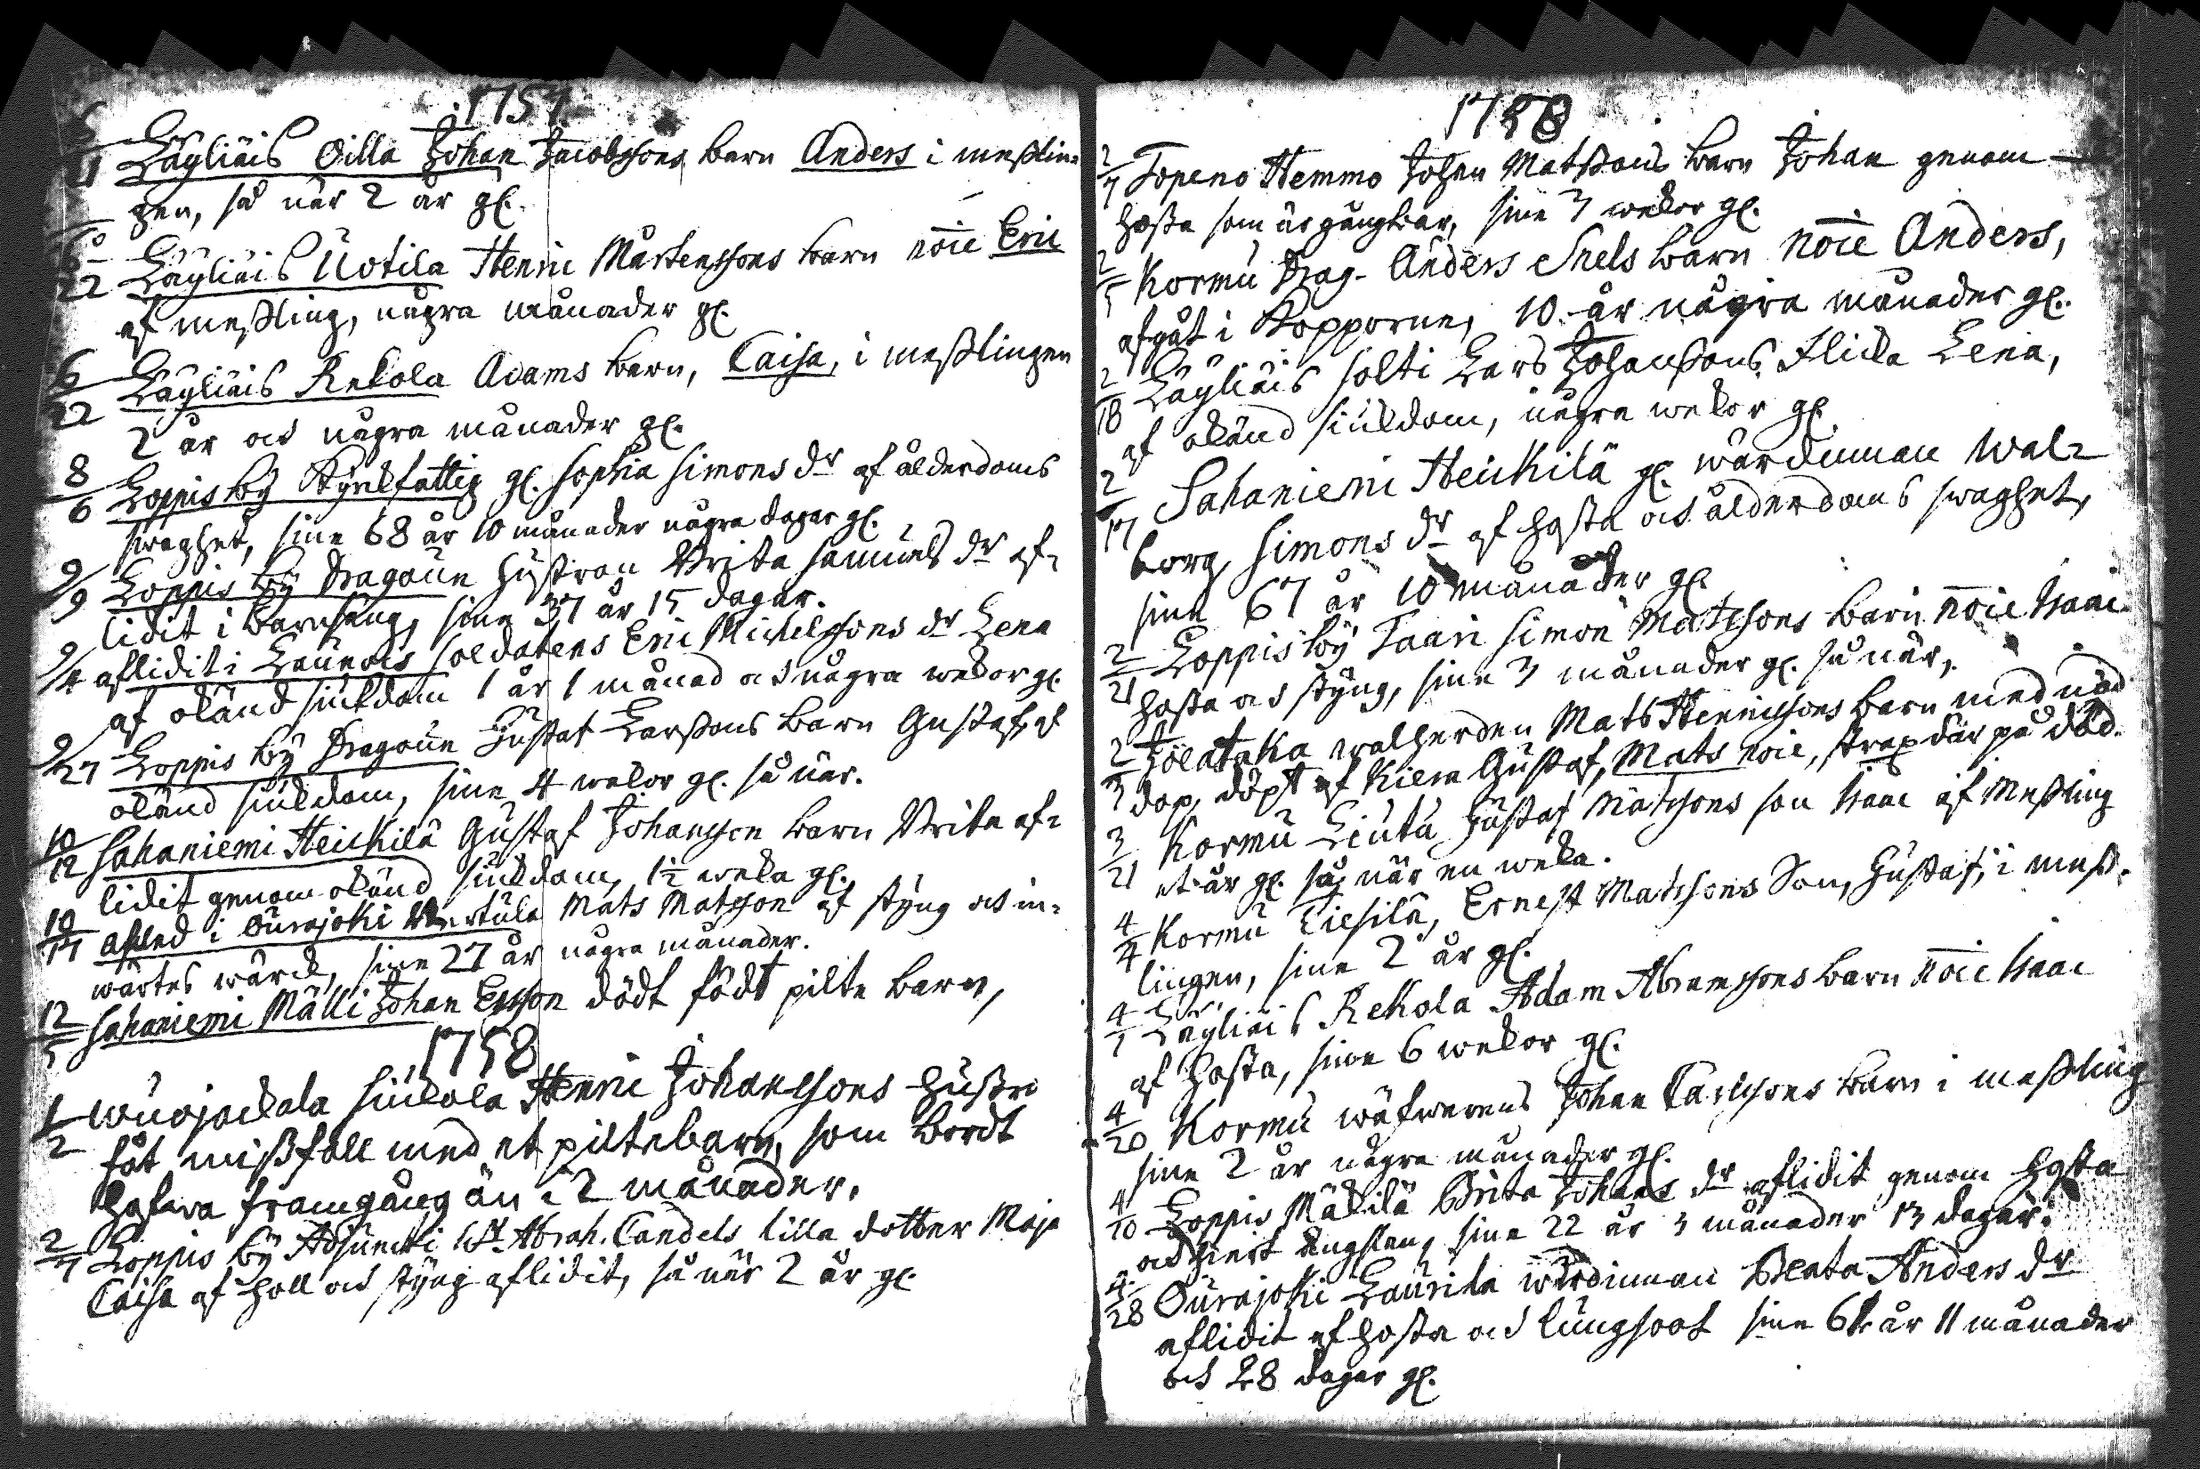 1757.
6/11 Läyliäis Oilla Johan Jacobssons barn Anders i meßlin-
gen, så när 2 år gl.
6/22 Läyliäis Uotila Henric Mårtenssons barn noie Eric
af meßling, några månader gl.
6/22 Läyliäis Rekola Adams barn, Caisa, i meßlingen
2 år och några månader gl.
8/6 Loppis by kyrkfattig gl. Sophia Simons dr af ålderdoms
swaghet, sine 68 år 10 månader några dagar gl.
9/9 Loppis by Dragoun hustron Brita Samuels dr af-
lidit i barnsäng, sine 37 år 15 dagar.
9/4 aflidit i Launois soldatens Eric Michelssons dr Lena
af okänd siukdom 1 år 1 månad och några wekor gl.
9/27 Loppis by Dragoun Gustaf Larssons barn Gustaf, af
okänd siukdom, sine 4 wekor gl. så när.
10/12 Sahaniemi Heickilä Gustaf Johansson barn Brita af-
lidit genom okänd siukdom, 1½ weka gl.
10/17 afled i Ourajoki Mats Matsson af styng och in-
wärtes wärck, sine 27 år några månader.
12/5 Sahaniemi Mälli Johan Ersson dödt födt pilte barn,
1758
1/2 Wuojackala Siukola Henric Johanssons hustro
fåt mißfall med et piltebarn, som bordt
hafwa framgång än i 2 månader.
2/7 Loppis by Adjuncti Abrah. Candels lilla dotter Maja
Caisa af håll och styng aflidit, så när 2 år gl.
1758
2/7 Topeno Hemmo Johan Matssons barn Johan genom
hosta som är gångbar, sine 3 wekor gl.
2/5 Kormu Drag. Anders Snels barn noie Anders,
afgåt i kopporne, 10 år några månader gl.
2/18 Läyliäis Solti Lars Johanssons flicka Lena,
af okänd siukdom, några wekor gl.
2/17 Sahaniemi Heickilä gl. wärdinnan Wal-
borg Simons dr af hosta och ålderdoms swaghet,
sine 67 år 10 månader gl.
2/21 Loppis by Taari Simon Matssons barn noie Isaac
hosta och styng, sine 3 månader gl. så när,
2/3 walherden Mats Henricssons barn med nöd
dop, döpt af Gustaf, Mats noie, strax där på död.
3/21 Kormu Liutu Gustaf Matssons son Isaac af Meßling
et år gl. så när en weka.
4/4 Kormu Tiesilä, Ernest Matssons Son, Gustaf, i meß-
lingen, sine 2 år gl.
4/7 Läyliäis Rekola Adam Abramssons barn noie Isaac
af hosta, sine 6 wekor gl.
4/20 Kormu wäfwerens Johan Carlssons barn i meßling
sine 2 år några månader gl.
4/10 Loppis Mäkilä Brita Johans dr aflidit genom hosta
och hiert ängslan, sine 22 år 3 månader 13 dagar.
4/28 Ourajoki Laurila wärdinnan Beata Anders dr
aflidit af hosta och lungsoot sine år 11 månader
och 28 dagar gl.